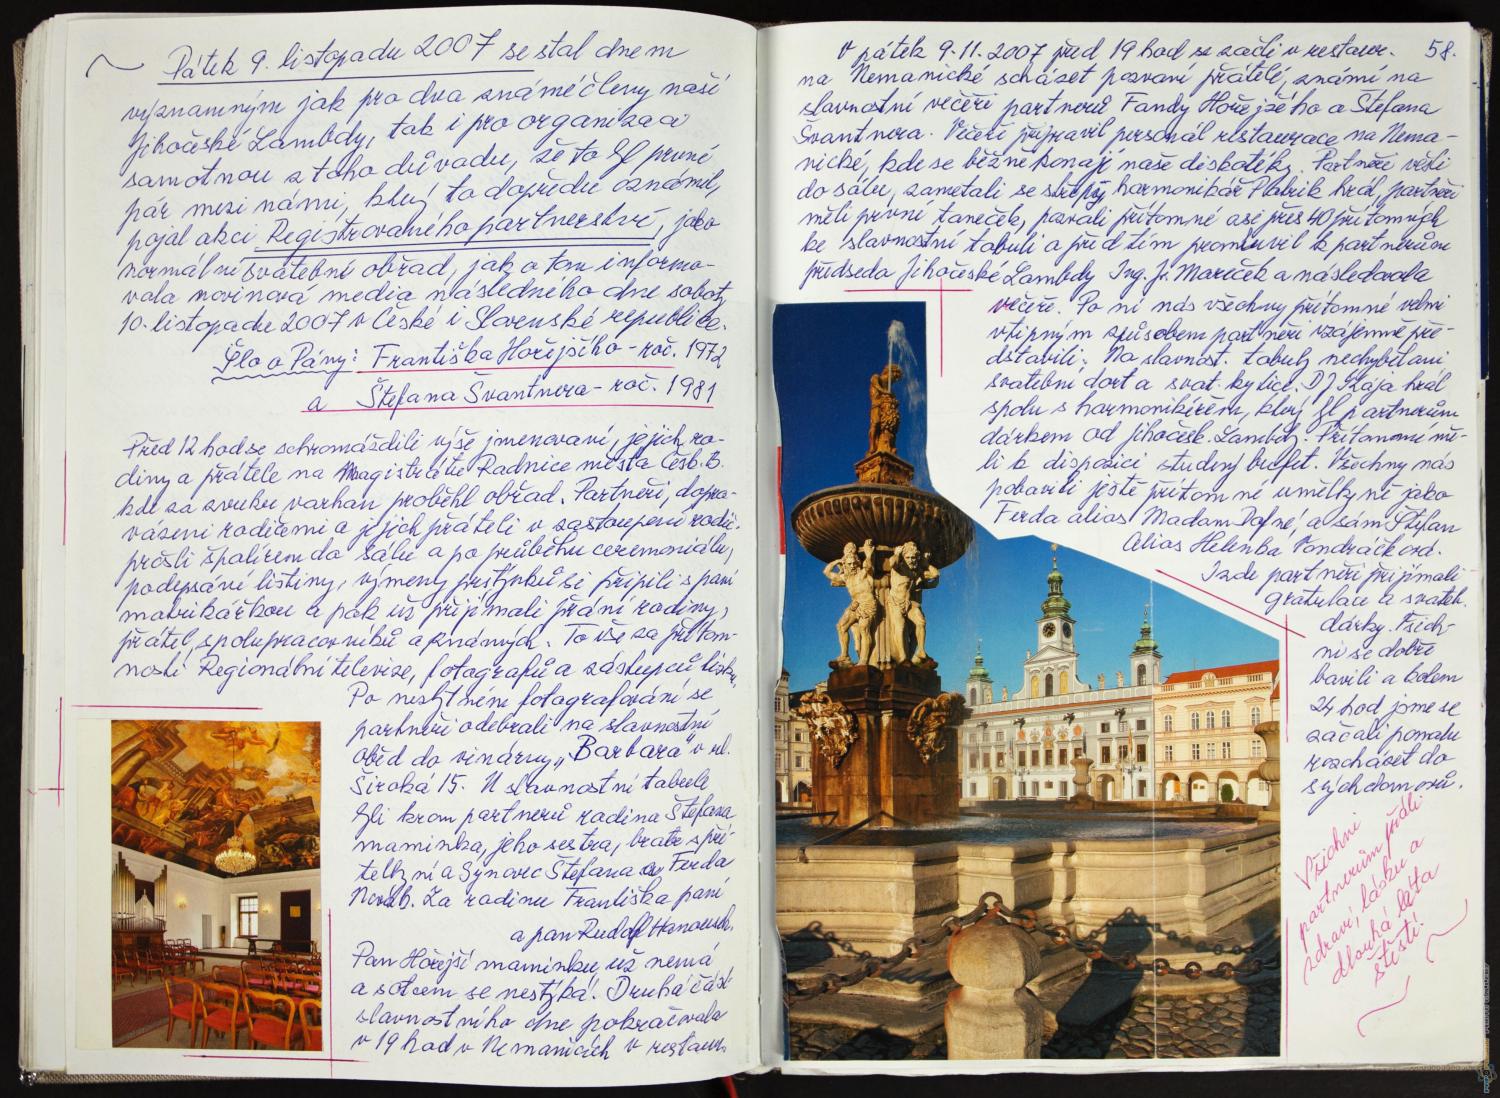 Pátek 9. listopadu 2007 se stal dnem
významným jak pro dva známé členy naší
Jihočeské Lambdy, tak i pro organizaci
samotnou z toho důvodu, že to byl první
pár mezi námi, který to dopředu oznámil,
pojal akci Registrovaného partnerství, jako
normální svatební obřad, jak o tom informo-
vala novinová media následného dne soboty
10. listopadu 2007 v České i Slovenské republice.
Šlo o Pány: Františka Hořejšího - roč. 1972
a Štefana Švantnera - roč. 1981
Před 12 hod se schromáždili výše jmenovaní, jejich ro-
diny a přátelé na Magistrátě Radnice města Česk. B.
kde za zvuku varhan proběhl obřad. Partneři, dopro-
vázeni rodičemi a jejich přáteli v zastoupení rodič.
prošli špalírem do sálu a po průběhu ceremoniálu,
podepsání listiny, výmeny prstýnků si připili s paní
matrikářkou a pak už přijímali přání rodiny,
přátel, spolupracovníků a známých. To vše za přítom-
nosti Regionální televize, fotografů a zástupců tisku.
Po nezbytném fotografování se
partneři odebrali na slavnostní
oběd do vinárny "Barbara" v ul.
Široká 15. U slavnostní tabule
byli krom partnerů rodina Štefana
maminka, jeho sestra, bratr s pří-
telkyní a synovec Štefana a Ferda
Novák. Za rodinu Františka paní
a pan Rudolf Hanousek.
Pan Hořejší maminku už nemá
a s otcem se nestýká. Druhá část
slavnostního dne pokračovala
v 19 hod v Nemanicích v restaur.
58.
V pátek 9.11.2007 před 19 hod se začli v restaur.
na Nemanické scházet pozvaní přátelé, známí na
slavnostní večeři partnerů Fandy Hořejšího a Štefana
Švantnera. Večeři připravil personál restaurace na Nema-
nické, kde se běžně konají naše diskotéky. Partneři vešli
do sálu, zametali se střepy, harmonikář Patrik hrál, partneři
měli první taneček, pozvali přítomné asi přes 40 přítomných
ke slavnostní tabuli a před tím promluvil k partnerům
předseda Jihočeské Lambdy Ing. Jr. Mareček a následovala
večeře. Po ní nás všechny přítomné velmi
vtipným způsobem partneři vzájemně pře-
dstavili. Na slavnost. tabuly nechyběl ani
svatební dort a svat. kytice. DJ Kája hrál
spolu s harmonikářem, který byl partnerům
dárkem od Jihočesk. Lambdy. Přítomní mě-
li k dispozici studený bufet. Všechny nás
pobavili ještě přítomné umělkyně jako
Ferda alias Madam Dafné, a sám Štefan
Alias Helenka Vondráčková.
I zde partneři přijímali
gratulace a svateb.
dárky. Všich-
ni se dobře
bavili a kolem
24 hod jsme se
začali pomalu
rozcházet do
svých domovů.
Všichni
partnerům přáli
zdraví, lásku a
dlouhá léta
štěstí.